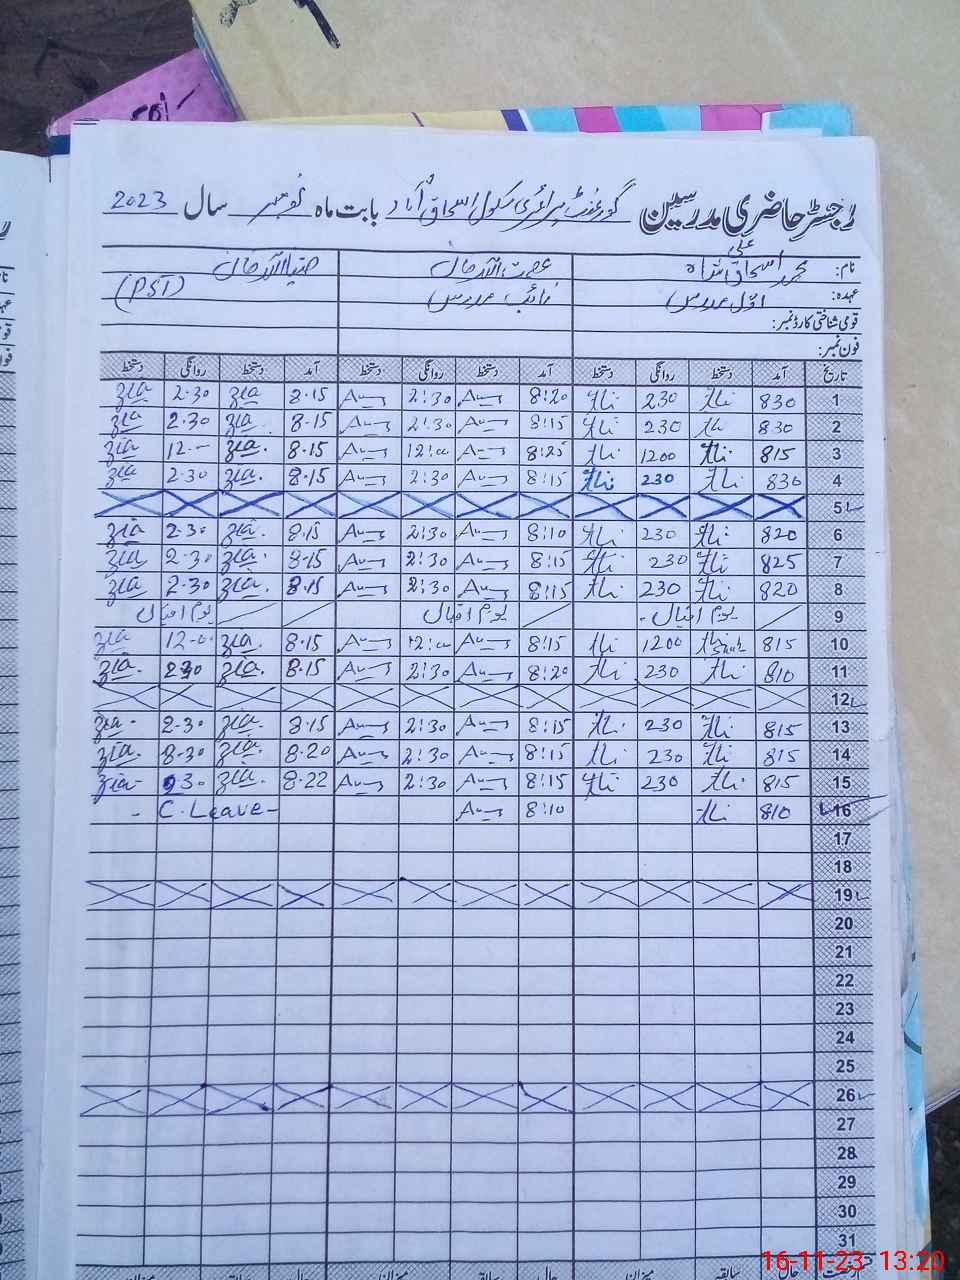 50/-
رجسٹر حاضری مدرسین گورنمنٹ پرائمری سکول اسحاق آباد بابت ماہ نومبر سال 2023
نام: محمد اسحاق علی شاہ عصمت اللہ خان ضیاء اللہ خان
عہدہ: اول مدرس نائب مدرس (PST)
قومی شناختی کارڈ نمبر:
فون نمبر:
تاریخ آمد دستخط روانگی دستخط آمد دستخط روانگی دستخط آمد دستخط روانگی دستخط
1 830 230 8:20 2:30 8.15 zia 2.30 zia
2 830 230 8:15 2:30 8.15 zia 2.30 zia
3 815 1200 8:25 12:00 8.15 zia. 12.- zia
4 830 230 8:15 2:30 8.15 zia. 2.30 zia
5
6 820 230 8:10 2:30 8.15 zia. 2.30 zia
7 825 230 8:15 2:30 8.15 zia. 2.30 zia
8 820 230 8:15 2:30 8.15 zia. 2.30 zia
9 یوم اقبال یوم اقبال یوم اقبال
10 815 1200 8:15 12:00 8.15 zia. 12.0 zia
11 810 230 8:20 2:30 8.15 zia. 230 zia.
12
13 815 230 8:15 2:30 8.15 zia. 2.30 zia.
14 815 230 8:15 2:30 8.20 zia. 8.30 zia.
15 815 230 8:15 2:30 8.22 zia. 30 zia-
16 810 8:10 - C. Leave -
17
18
19
20
21
22
23
24
25
26
27
28
29
30
31
حال سابقہ میزان حال سابقہ میزان حال سابقہ میزان
16-11-23 13:20